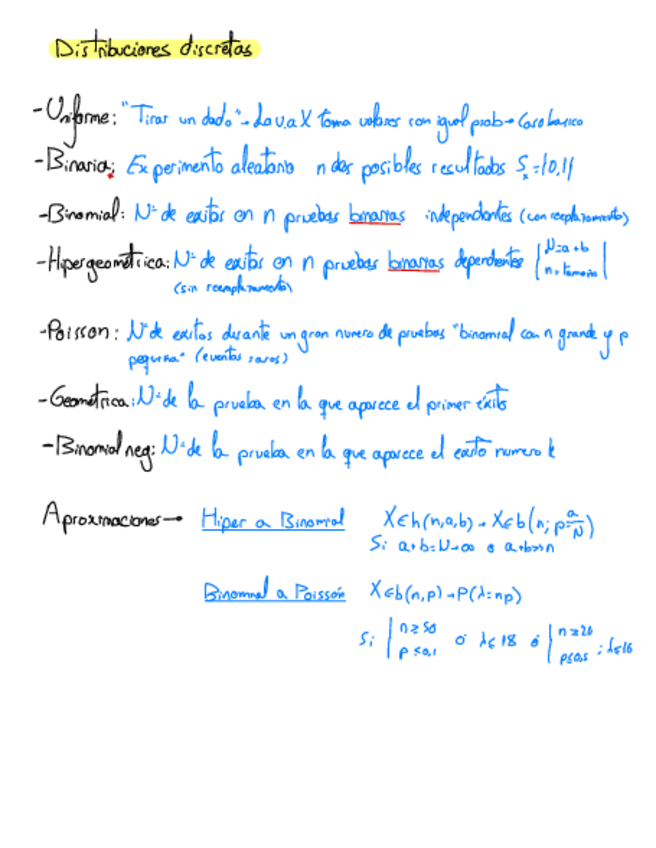 Distribuciones discretas
-Uniforme: "Tirar un dado" → La v.a X toma valores con igual prob → Caso basico
-Binaria: Experimento aleatorio n dos posibles resultados Sx={0,1}
-Binomial: Nº de exitos en n pruebas binarias independentes (con reemplazamiento)
-Hipergeométrica: Nº de exitos en n pruebas binarias dependentes | N=a+b
(sin reemplazamiento) n=tamaño |
-Poisson: Nº de exitos durante un gran numero de pruebas "binomial con n grande y p
pequeña" (eventos raros)
-Geométrica: Nº de la prueba en la que aparece el primer éxito
-Binomial neg: Nº de la prueba en la que aparece el exito numero k
Aproximaciones → Hiper a Binomial X∈h(n,a,b) → X∈b(n; p=a/N)
Si a+b=N→∞ o a+b>>n
Binomial a Poissón X∈b(n,p) → P(λ=np)
Si | n≥50 ó λ≤18 ó | n≥20
p≤0,1 p≤0,5 ; λ≤16